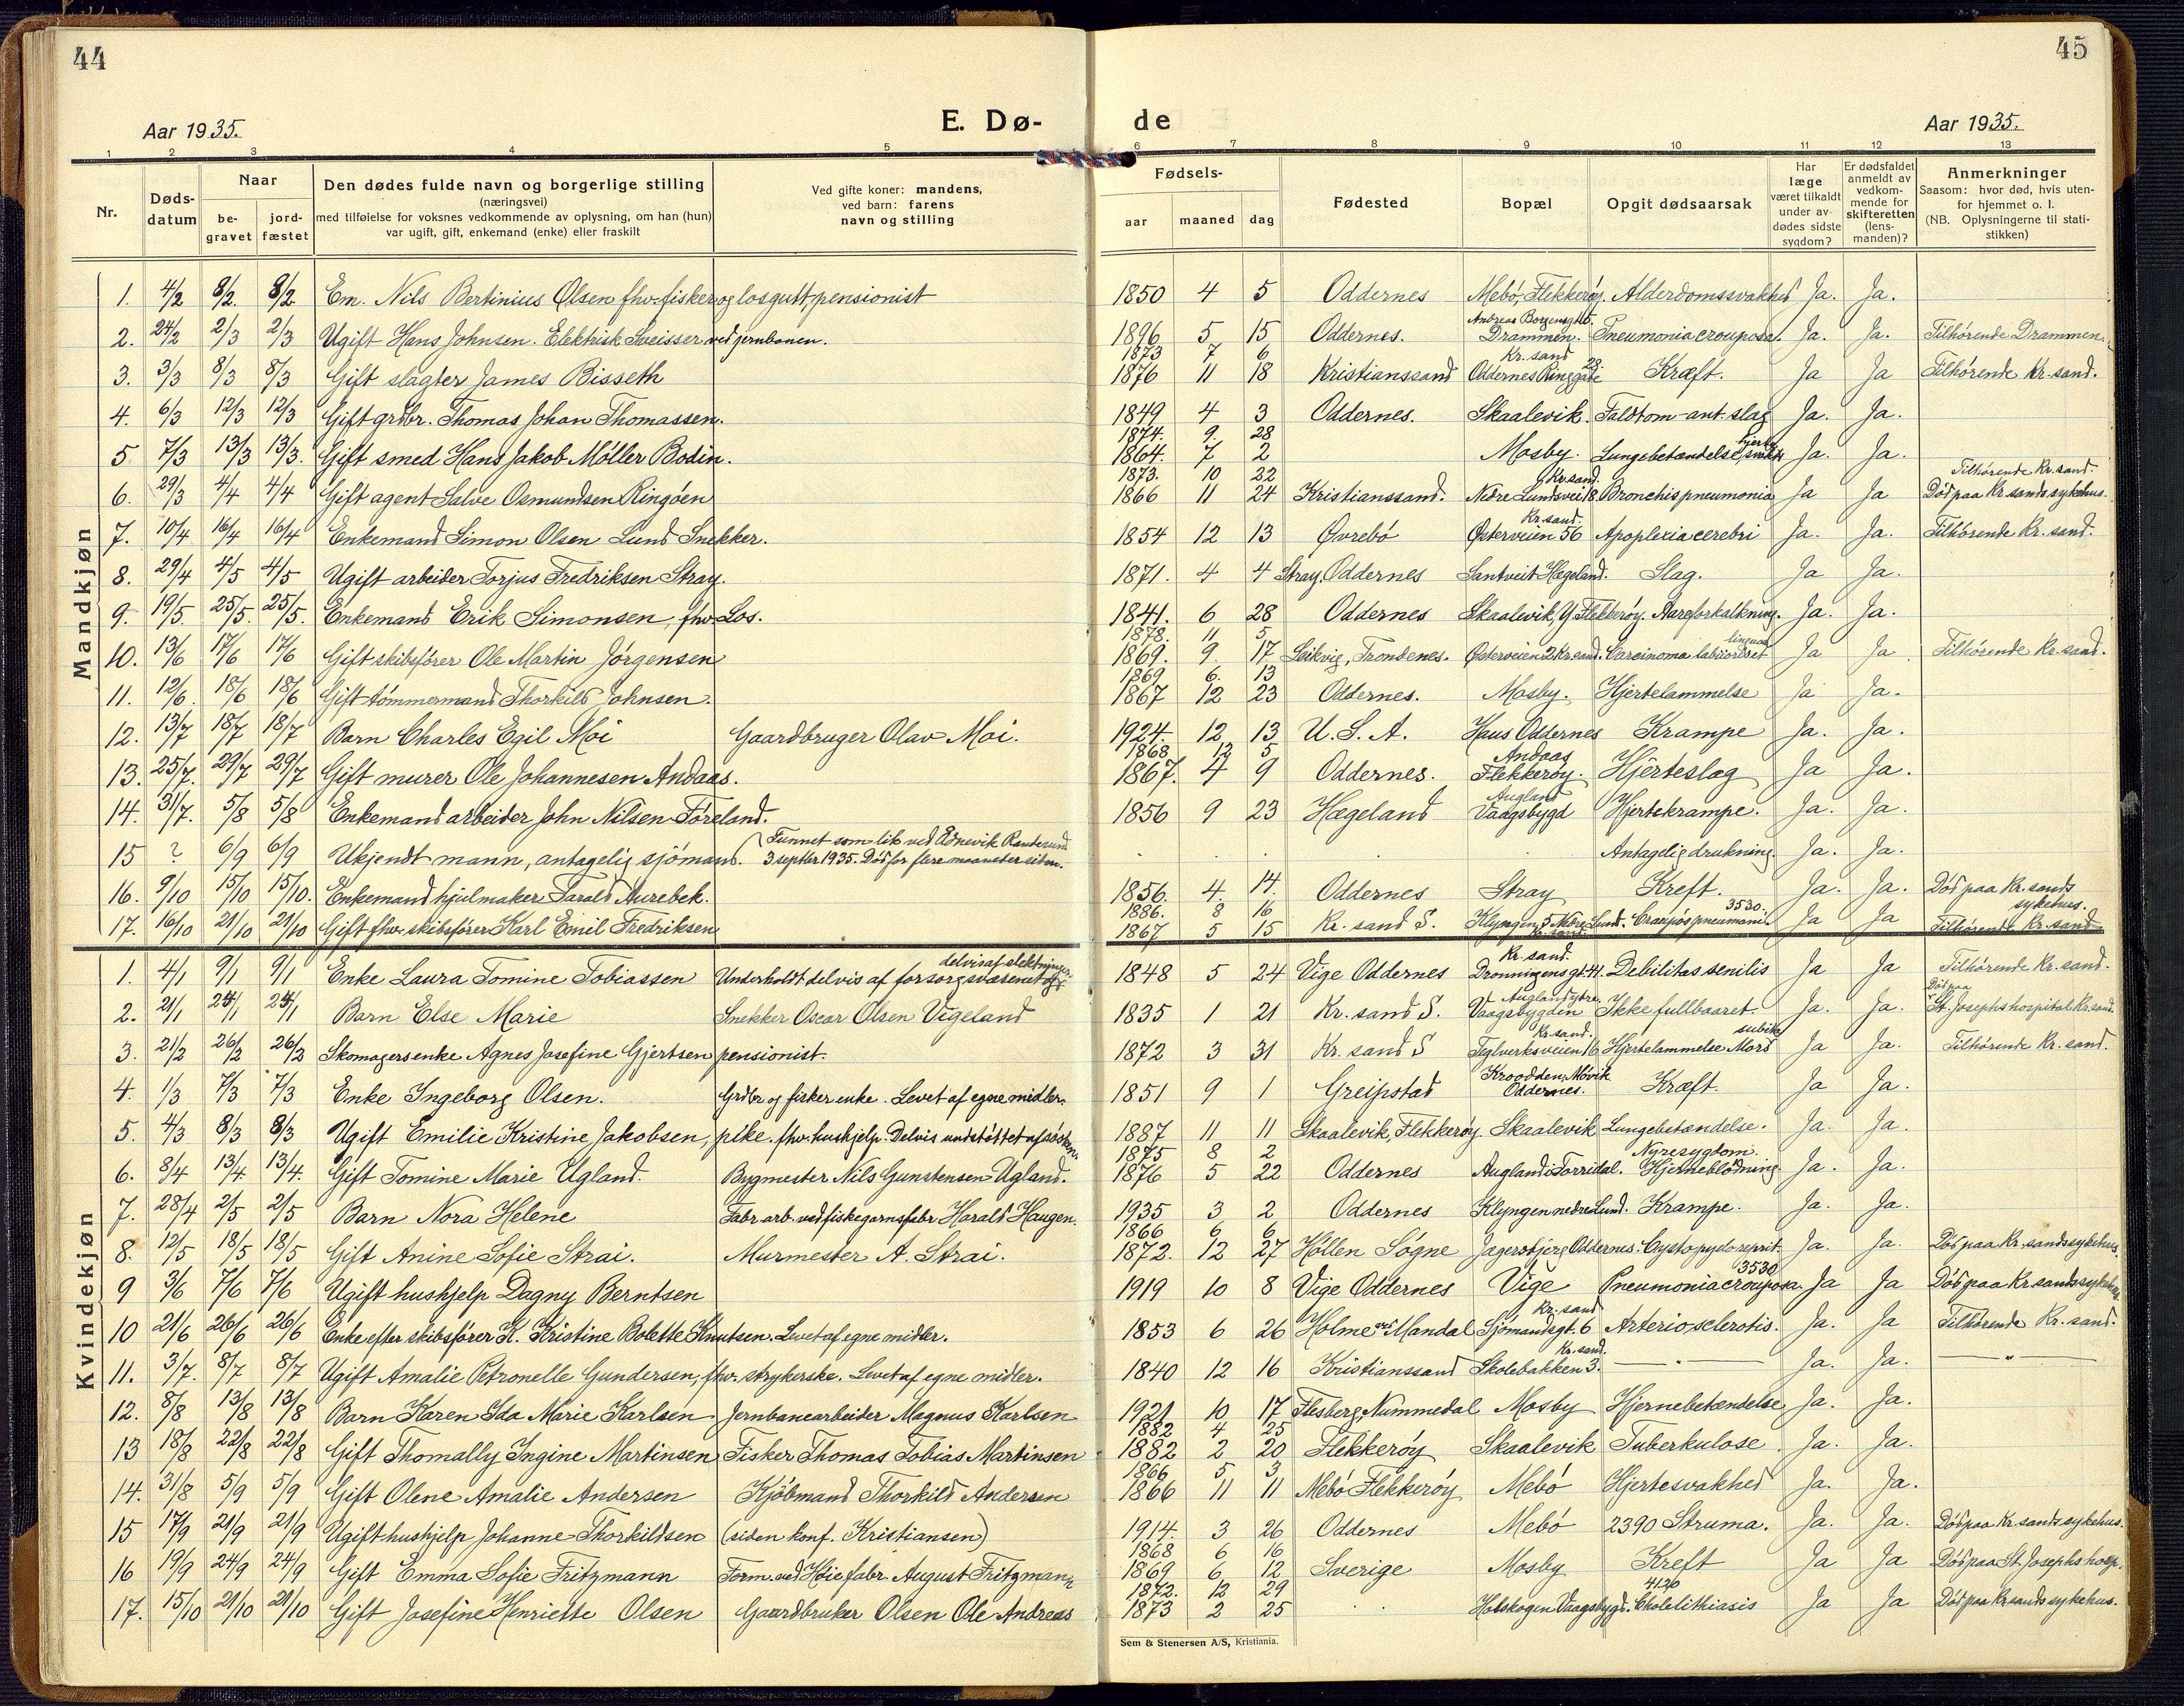 44
45
Aar 1935.
E. Dø-
de
Aar 1935.
1 2 3 4 5 6 7 8 9 10 11 12 13
Nr.
Døds-datum
Naar
be-gravet
jord-fæstet
Den dødes fulde navn og borgerlige stilling
(næringsvei)
med tilføielse for voksnes vedkommende av oplysning, om han (hun)
var ugift, gift, enkemand (enke) eller fraskilt
Ved gifte koner: mandens,
ved barn: farens
navn og stilling
Fødsels-
aar maaned dag
Fødested
Bopæl
Opgit dødsaarsak
Har læge været tilkaldt under av-dødes sidste sygdom?
Er dødsfaldet anmeldt av vedkom-mende for skifteretten (lens-manden)?
Anmerkninger
Saasom: hvor død, hvis uten-for hjemmet o. l.
(NB. Oplysningerne til stati-stikken)
Mandkjøn
1. 4/2 8/2. 8/2 Em. Nils Bertinius Olsen fhv. fisker og losgutt, pensionist 1850 4 5 Oddernes Mebö, Flekkeröy. Alderdomssvakhed Ja. Ja.
2. 24/2 2/3 2/3 Ugift Hans Johnsen. Elektrisk Sveisser ved jernbanen. 1896 5 15 Oddernes. Andreas Borgensgt 16. Drammen. Pneumonia crouposa. Ja. Ja. Tilhörende Drammen.
3. 3/3 8/3 8/3 Gift slagter James Bisseth 1873 7 6 1876 11 18 Kristianssand Kr. sand Oddernes Ringgate 28 Kræft. Ja Ja Tilhörende Kr. sand.
4. 6/3 12/3 12/3 Gift grdbr. Thomas Johan Thomassen. 1849 4 3 Oddernes. Skaalevik. Faldt om - ant. slag Ja. Ja.
5 7/3 13/3 13/3. Gift smed Hans Jakob Möller Bodin. 1874. 9. 28 1864. 7 2 Mosby. Lungebetændelse, hjerte Ja. Ja.
6. 29/3 4/4 4/4 Gift agent Salve Osmundsen Ringöen 1873. 10 22 1866 11 24 Kristianssand. Kr. sand. Nedre Lundsvei 18 Bronchispneumonia Ja Ja Tilhörende Kr. sand. Död paa Kr. sands sykehus.
7. 10/4 16/4 16/4 Enkemand Simon Olsen Lund Snekker. 1854 12 13 Øvrebö Kr. sand. Østerveien 56 Apoplexia cerebri Ja. Ja. Tilhörende Kr. sand.
8. 29/4 4/5 4/5 Ugift arbeider Torjus Fredriksen Stray. 1871. 4 4 Stray, Oddernes Santveit Hægeland. Slag. Ja Ja.
9. 19/5. 25/5. 25/5. Enkemand Erik Simonsen, fhv. Los. 1841. 6 28 Oddernes Skaalevik, Y. Flekkeröy. Aareforkalkning. Ja. Ja.
10. 13/6 17/6 17/6 Gift skibsförer Ole Martin Jörgensen 1878. 11 5 1869. 9. 17 Leikvig, Trondenes. Østerveien 2 Kr. sand. Carcinoma Ja Ja Tilhörende Kr. sand.
11. 12/6. 18/6 18/6 Gift tömmermand Thorkild Johnsen. 1869 6. 13 1867 12 23 Oddernes. Mosby. Hjertelammelse Ja Ja.
12. 13/7 18/7 18/7 Barn Charles Egil Moi Gaardbruger Olav Moi. 1924. 12 13 U. S. A. Haus Oddernes Krampe Ja. Ja.
13. 25/7. 29/7 29/7 Gift murer Ole Johannesen Andaas. 1868 12 5 1867. 4 9 Oddernes. Andaas Flekkeröy. Hjerteslag Ja Ja.
14. 31/7. 5/8 5/8 Enkemand arbeider John Nilsen Föreland. 1856 9 23 Hægeland Augland Vaagsbygd Hjertekrampe. Ja. Ja.
15 ? 6/9 6/9 Ukjendt mann, antagelig sjömand. Funnet som lik ved Ednevik Randesund 3 septbr 1935. Död for flere maaneter siden. Antagelig drukning. Ja. Ja.
16. 9/10 15/10 15/10. Enkemand hjulmaker Tarald Aurebek. 1856. 4. 14. Oddernes Stray Kreft. Ja. Ja. Död paa Kr. sands sykehus.
17. 16/10 21/10 21/10 Gift fhv. skibsförer Karl Emil Fredriksen 1886. 8 16 1867 5 15 Kr. sand S. Klyngen, 5 Nedre Lund. 3530. pneumoni. Ja Ja Tilhörende Kr. sand
Kvindekjøn
1. 4/1 9/1 9/1 Enke Laura Tomine Tobiassen Underholdt delvis af forsorgsvæsenet og delvis af slektninger 1848 5 24 Vige Oddernes Kr. sand. Dronningensgt 44. Debilitas senilis Ja Ja Tilhörende Kr. sand.
2. 21/1 24/1 24/1 Barn Else Marie Snekker Oscar Olsen Vigeland 1835 1 21 Kr. sand S. Vaagsbygden Ikke fullbaaret. Ja. Ja. Död paa St. Josephs hospital Kr. sand.
3. 21/2 26/2 26/2 Skomagersenke Agnes Josefine Gjertsen pensionist. 1872 3 31 Kr. sand S Kr. sand. Teglverksveien 16 Hjertelammelse Mors subita Ja Ja. Tilhörende Kr. sand.
4. 1/3 7/3 7/3 Enke Ingeborg Olsen. Grdbr og fisker enke. Levet af egne midler. 1851 9 1 Greipstad Kroodden, Mövik Oddernes. Kræft. Ja Ja.
5. 4/3 8/3 8/3 Ugift Emilie Kristine Jakobsen, pike. fhv. hushjelp. Delvis understöttet af sösken. 1887 11 11 Skaalevik, Flekkeröy. Skaalevik Lungebetændelse. Ja. Ja.
6. 8/4 13/4. 13/4. Gift Tomine Marie Ugland. Bygmester Nils Gunstensen Ugland. 1875 8 2 1876 5 22 Oddernes Augland i Torridal. Nyresygdom. Hjerneblödning Ja. Ja.
7. 28/4 2/5 2/5 Barn Nora Helene Fabr. arb. ved fiskegarnsfabr Harald Haugen. 1935 3 2 Oddernes Klyngen nedre Lund. Krampe. Ja. Ja.
8. 12/5 18/5 18/5 Gift Anine Sofie Strai. Murmester A. Strai. 1866 6 6 1872. 12 27 Höllen Sögne Jagersbjerg Oddernes. Ja. Ja. Död paa Kr. sands sykehus.
9 3/6 7/6 7/6 Ugift hushjelp Dagny Berntsen 1919 10 8 Vige Oddernes Vige 3530 Pneumonia crouposa. Ja Ja Död paa Kr. sands sykehus
10 21/6 26/6 26/6 Enke efter skibsförer K. Kristine Bolette Knutsen. Levet af egne midler. 1853 6 26 Holme ved Mandal Kr. sand Sjömandsgt. 6 Arteriosclerotis. Ja. Ja Tilhörende Kr. sand.
11. 3/7. 8/7 8/7 Ugift Amalie Petronelle Gundersen, fhv. strykerske. Levet af egne midler. 1840 12 16 Kristianssand Kr. sand. Skolebakken 3. — " — Ja. Ja. — " —
12. 8/8 13/8 13/8 Barn Karen Ida Marie Karlsen Jernbanearbeider Magnus Karlsen 1921 10 17 Flesberg, Nummedal Mosby Hjernebetændelse Ja. Ja.
13 18/8 22/8 22/8 Gift Thomally Ingine Martinsen Fisker Thomas Tobias Martinsen 1882 4 25 1882 2 20 Flekkeröy Skaalevik Tuberkulose. Ja. Ja.
14. 31/8 5/9 5/9 Gift Olene Amalie Andersen Kjöbmand Thorkild Andersen 1866 5 3 1866 11 11 Mebö Flekkeröy Mebö Hjertesvakhed Ja. Ja.
15 17/9 21/9 21/9 Ugift hushjelp Johanne Thorkildsen (siden konf. Kristiansen) 1914. 3 26 Oddernes Mebö 2390 Struma. Ja. Ja. Död paa Kr. sands sykehus.
16 19/9 24/9 24/9 Gift Emma Sofie Fritzmann Form. ved Höie fabr. August Fritzmann 1868 6 16 1869 6 12 Sverige Mosby Kreft Ja Ja Död paa St. Josephs hosp.
17. 15/10 21/10 21/10 Gift Josefine Henriette Olsen Gaardbruker Olsen Ole Andreas 1872. 12 29 1873 2 25 Holskogen Vaagsbygd. 4126 Cholelithiasis Ja Ja Död paa Kr sands sykehus.
Sem & Stenersen A/S, Kristiania.